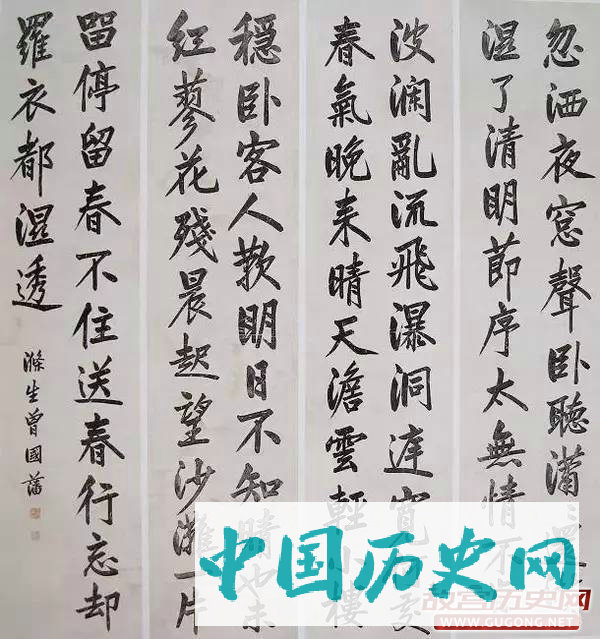 忽洒夜窓聲卧聽潇〻還
湿了清明莭序太無情不
波澜亂流飛瀑洞庭寬
春氣晚来晴天澹雲輕小樓
穩卧客人歎明日不知晴也未
红蓼花殘晨起望沙灘一片
畱停留春不住送春行忘却
羅衣都濕透
滌生曾國藩
中国历史网
故宫历史网
WWW.GUGONG.NET